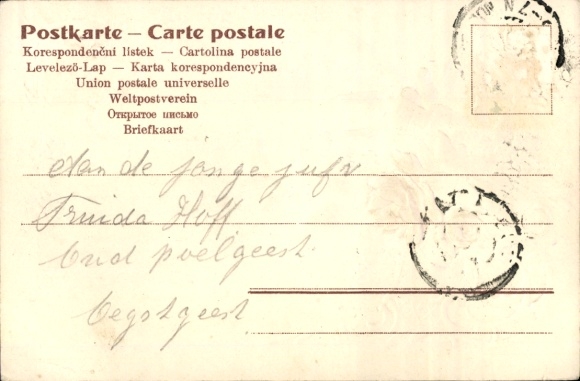 Postkarte — Carte postale
Korespondenčni listek — Cartolina postale
Levelező-Lap — Karta korespondencyjna
Union postale universelle
Weltpostverein
Открытое письмо
Briefkaart
Aan de jonge jufr
Truida Hoff
Oud poelgeest
Oegstgeest